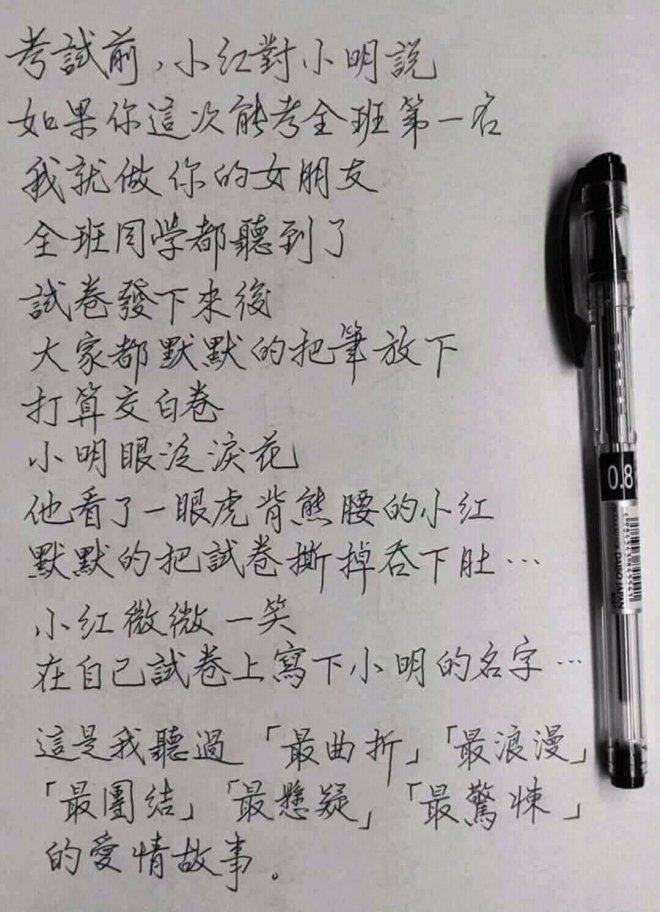 考試前，小红對小明説
如果你這次能考全班第一名
我就做你的女朋友
全班同学都聽到了
試卷發下來後
大家都默默的把筆放下
打算交白卷
小明眼泛淚花
他看了一眼虎背熊腰的小红
默默的把試卷撕掉吞下肚…
小红微微一笑
在自己試卷上寫下小明的名字…
這是我聽過「最曲折」「最浪漫」
「最團結」「最懸疑」「最驚悚」
的愛情故事。
0.8